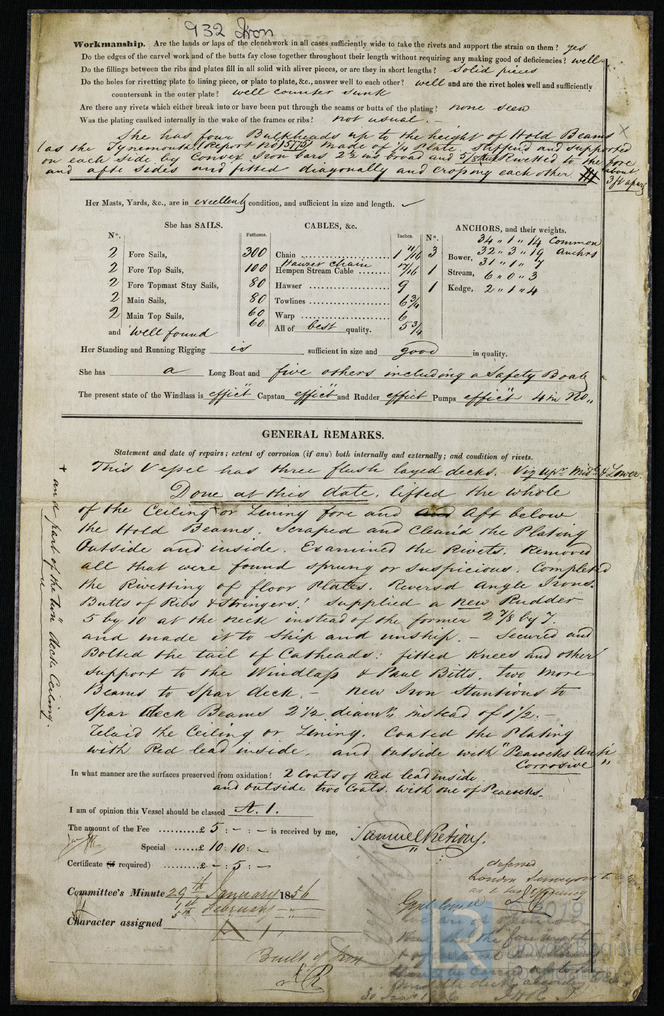 932 Iron
Workmanship. Are the lands or laps of the clenchwork in all cases sufficiently wide to take the rivets and support the strain on them? yes
Do the edges of the carvel work and of the butts fay close together throughout their length without requiring any making good of deficiencies? well
Do the fillings between the ribs and plates fill in all solid with sliver pieces, or are they in short lengths? Solid pieces
Do the holes for rivetting plate to lining piece, or plate to plate, &c., answer well to each other? well and are the rivet holes well and sufficiently
countersunk in the outer plate? well counter sunk
Are there any rivets which either break into or have been put through the seams or butts of the plating? none seen
Was the plating caulked internally in the wake of the frames or ribs? not usual. —
She has four Bulkheads up to the height of Hold Beams
(as the Tynemouth Report No made of 1/4 Plate, Stiffend and supported
on each side by Convex Iron bars, 2½ ins broad and 5/8 Rivetted to the fore
and afte sides and fitted diagonally and crossing each other about
3 ft apart
Her Masts, Yards, &c., are in excellent condition, and sufficient in size and length. ✓
She has SAILS. CABLES, &c. ANCHORS, and their weights.
Nº. Fathoms. Inches. Nº.
34 " 1 " 14 Common
2 Fore Sails, 300 Chain 1 11/16 3 Bower, 32 " 3 " 19 Anchrs
31 " 1 " 7
2 Fore Top Sails, 100 Hawser Chain Hempen Stream Cable 1 Stream, 6 " 0 " 3
2 Fore Topmast Stay Sails, 80 Hawser 9 1 Kedge, 2 " 1 " 4
2 Main Sails, 80 Towlines 6¾
2 Main Top Sails, 60 Warp 6
and well found 60 All of best quality. 5¾
Her Standing and Running Rigging is sufficient in size and good in quality.
She has a Long Boat and five others including a Safety Boat
The present state of the Windlass is effict Capstan effict and Rudder effict Pumps effict 4 in No,,
GENERAL REMARKS.
Statement and date of repairs; extent of corrosion (if any) both internally and externally; and condition of rivets.
This Vessel has three flush layed decks. Viz Upr Mid & Lower.
Done at this date. lifted the whole
of the Ceiling or Lining fore and aft below
the Hold Beams. Scraped and Clean'd the Plating
Outside and inside. Examined the Rivets. Removed
all that were found sprung or Suspicious. Completed
the Rivetting of floor Plates. Reversd Angle Irons.
Butts of Ribs & Stringers. Supplied a new Rudder
5 by 10 at the neck instead of the former 2 7/8 by 7.
and made it to Ship and unship. — Secured and
Bolted the tail of Catheads: fitted Knees and other
Support to the Windlass & Paul Bitts. two more
Beams to Spar deck. — New Iron Stantions to
Spar deck Beams 2½ diamtr, instead of 1½. —
Relaid the Ceiling or Lining. Coated the Plating
with Red lead inside. and Outside with Peacocks Anti
Corrosive "
+ and part of the twn decks Ceiling.
In what manner are the surfaces preserved from oxidation? 2 Coats of Red lead inside
and outside two Coats. with one of Peacocks.
I am of opinion this Vessel should be classed A.1.
The amount of the Fee £ 5 : - : - is received by me,
Samuel Pretious.
Special £ 10 : 10 : -
Certificate (if required) £ - : 5 : -
deferred
London Surveyors to
Committee's Minute 29th January 1856
1st
5th February
Character assigned A 1
Built of Iron
© 2019
Lloyd's Register